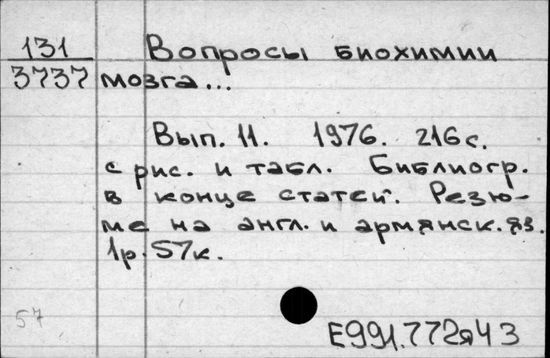 131 Вопросы биохимии
3737 мозга...
Вып. 11. 1976. 216 с.
с рис. и табл. Библиогр.
в конце статей. Резю-
ме на англ. и армянск. яз.
1р. 57к.
57
Е991.772я43